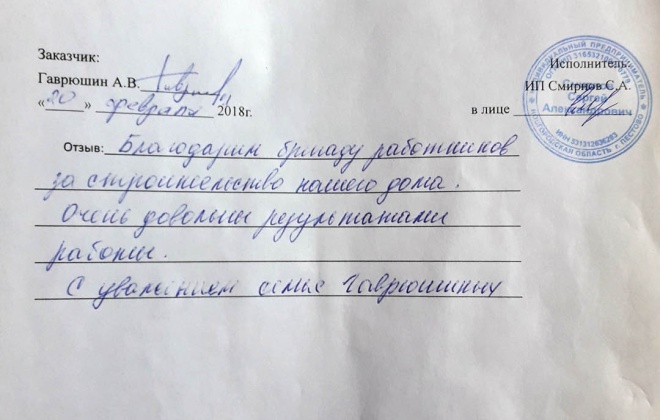 Заказчик:
Гаврюшин А.В.
«20» февраля 2018г.
Исполнитель:
ИП Смирнов С.А.
в лице
ИНДИВИДУАЛЬНЫЙ ПРЕДПРИНИМАТЕЛЬ
Смирнов
Сергей
Александрович
НОВГОРОДСКАЯ ОБЛАСТЬ г. ПЕСТОВО
Отзыв: Благодарим бригаду работников
за строительство нашего дома.
Очень довольны результатами
работы.
С уважением семья Гаврюшиных